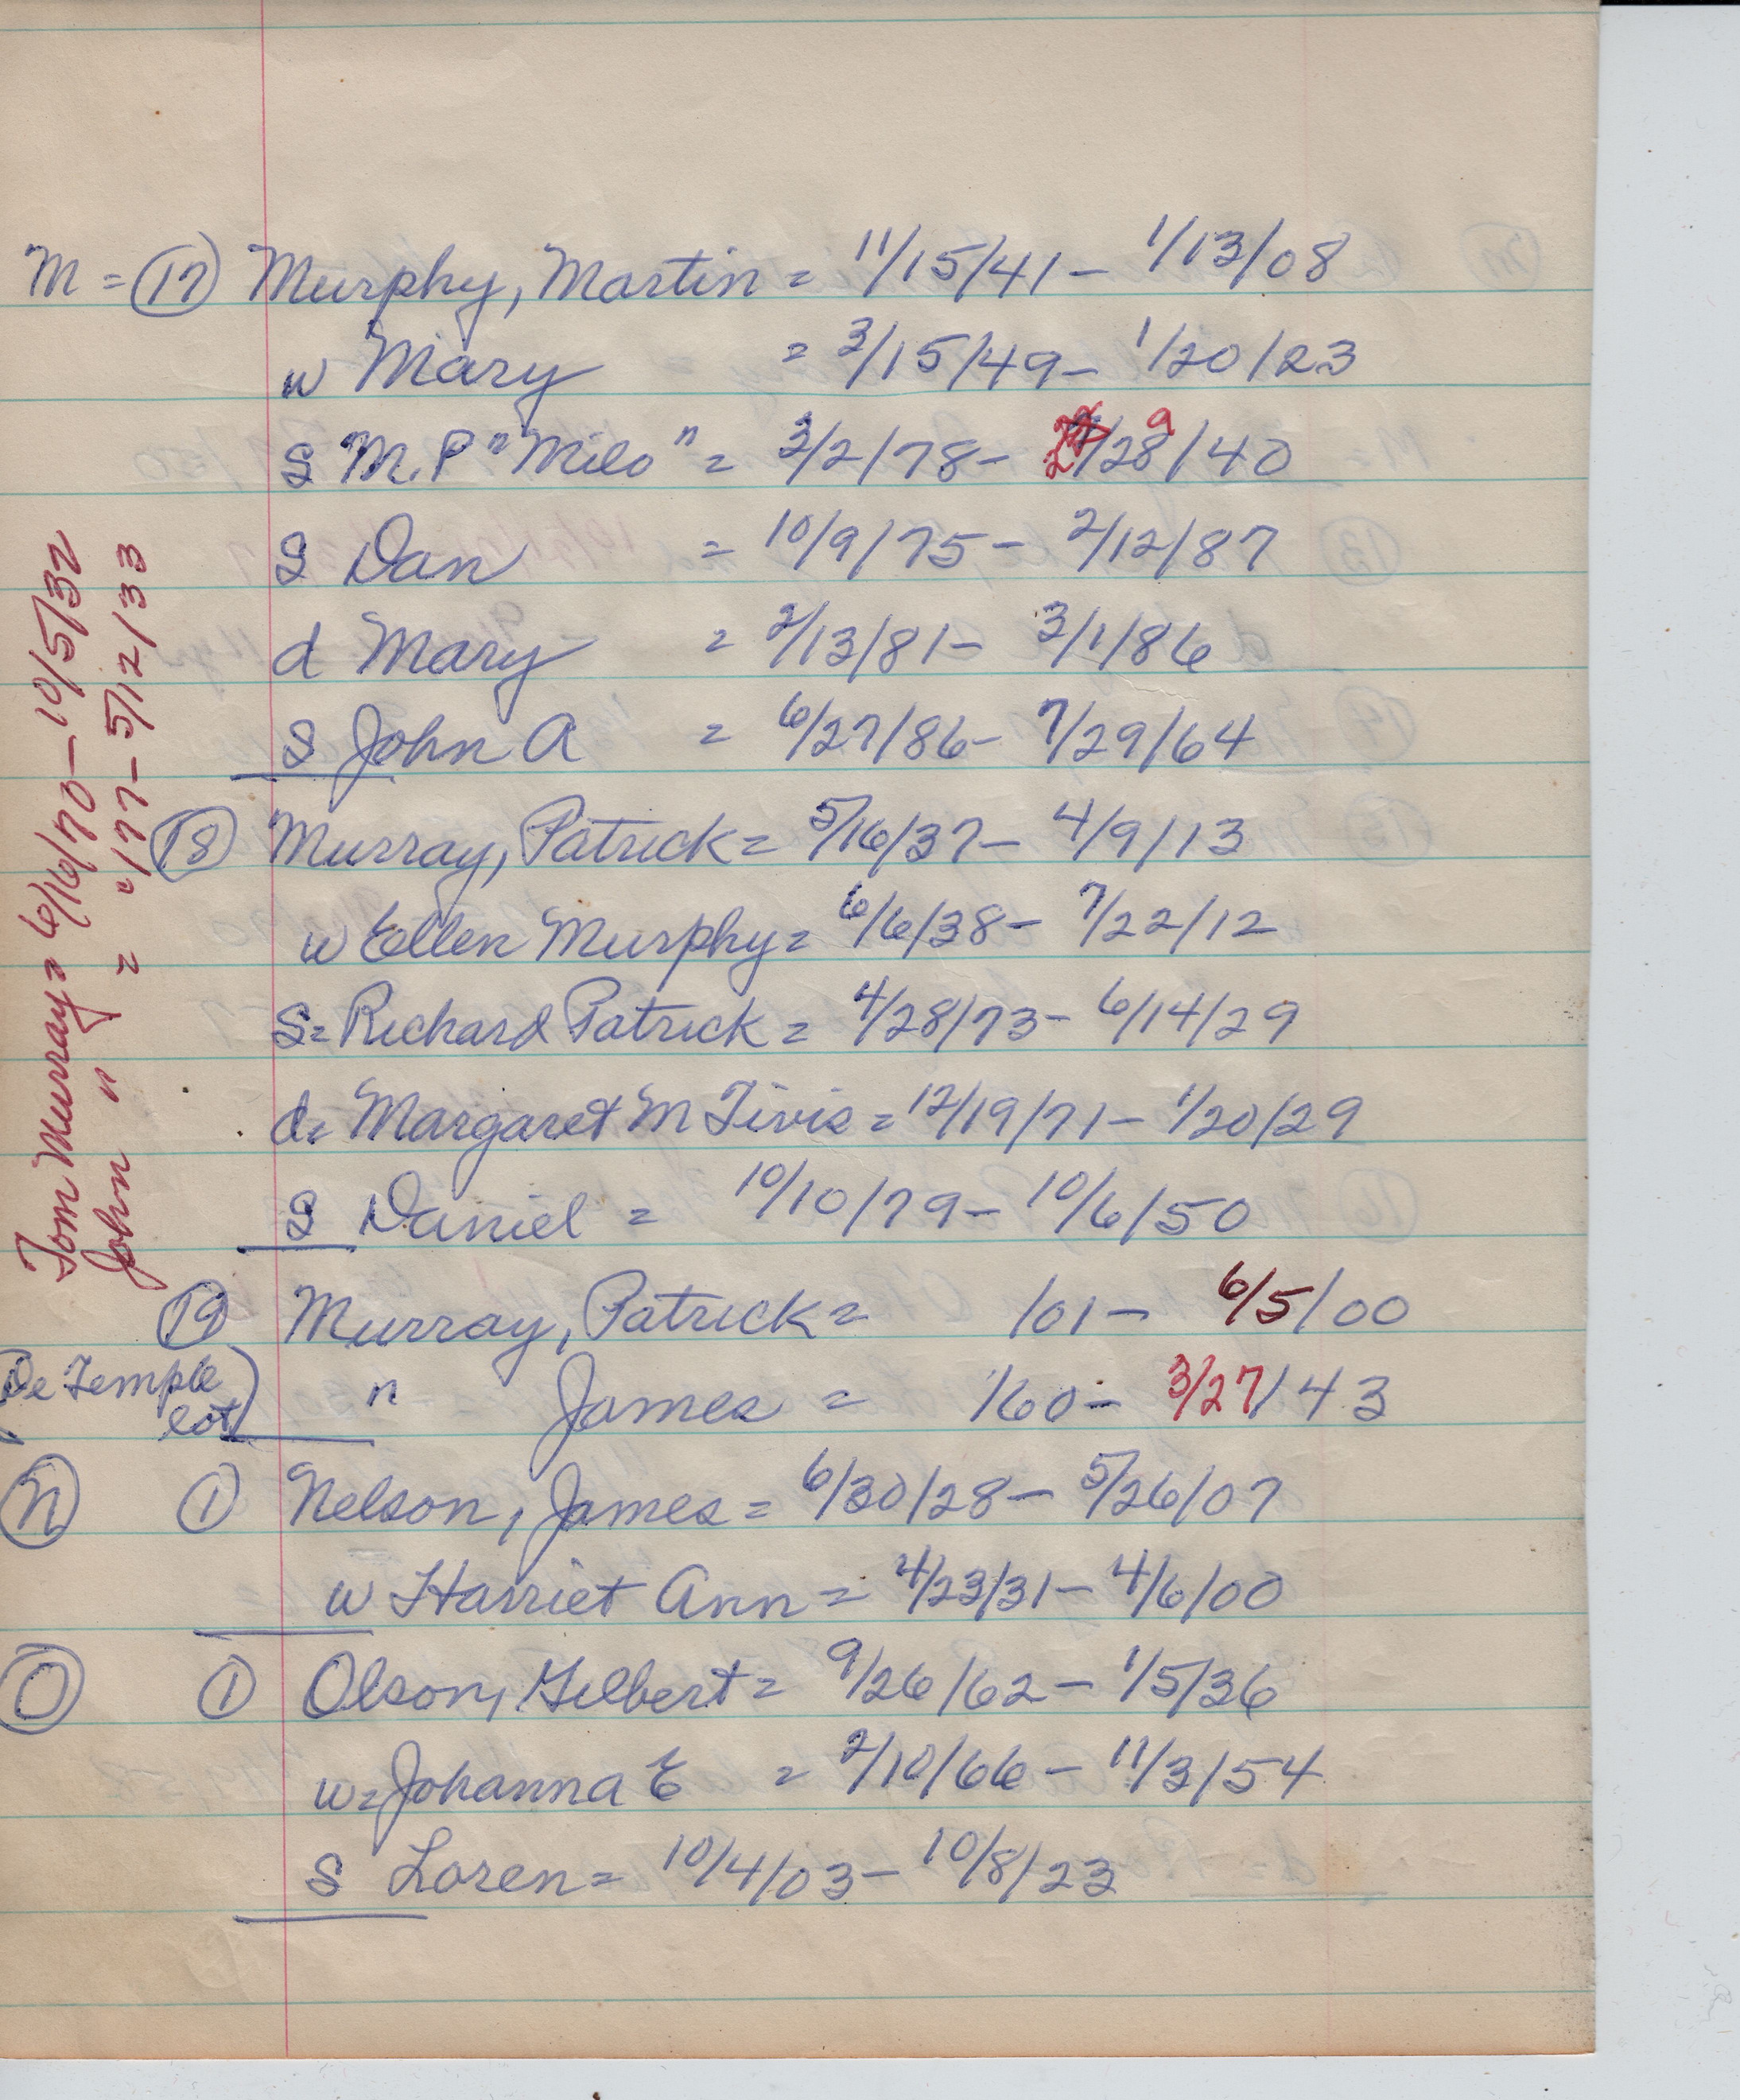 M = 17 Murphy, Martin = 11/15/41 – 1/13/08
w Mary = 3/15/49 – 1/20/23
S M.P "Milo" = 3/2/78 – /28 9/40
S Dan = 10/9/75 – 2/12/87
d Mary = 2/13/81 – 3/1/86
S John A = 6/27/86 – 7/29/64
18 Murray, Patrick = 5/16/37 – 4/9/13
w Ellen Murphy = 6/6/38 – 7/22/12
S = Richard Patrick = 4/28/73 – 6/14/29
d = Margaret M Tivis = 12/19/71 – 1/20/29
S Daniel = 10/10/79 – 10/6/50
19 Murray, Patrick = /01 – 6/5/00
(De Temple lot) " James = /60 – 3/27/43
N 1 Nelson, James = 6/30/28 – 5/26/07
w Harriet Ann = 4/23/31 – 4/6/00
O 1 Olson, Gilbert = 9/26/62 – 1/5/36
w = Johanna E = 2/10/66 – 11/3/54
S Loren = 10/4/03 – 10/8/23
Tom Murray = 6/16/70 – 10/5/32
John " = "/77 – 5/12/33